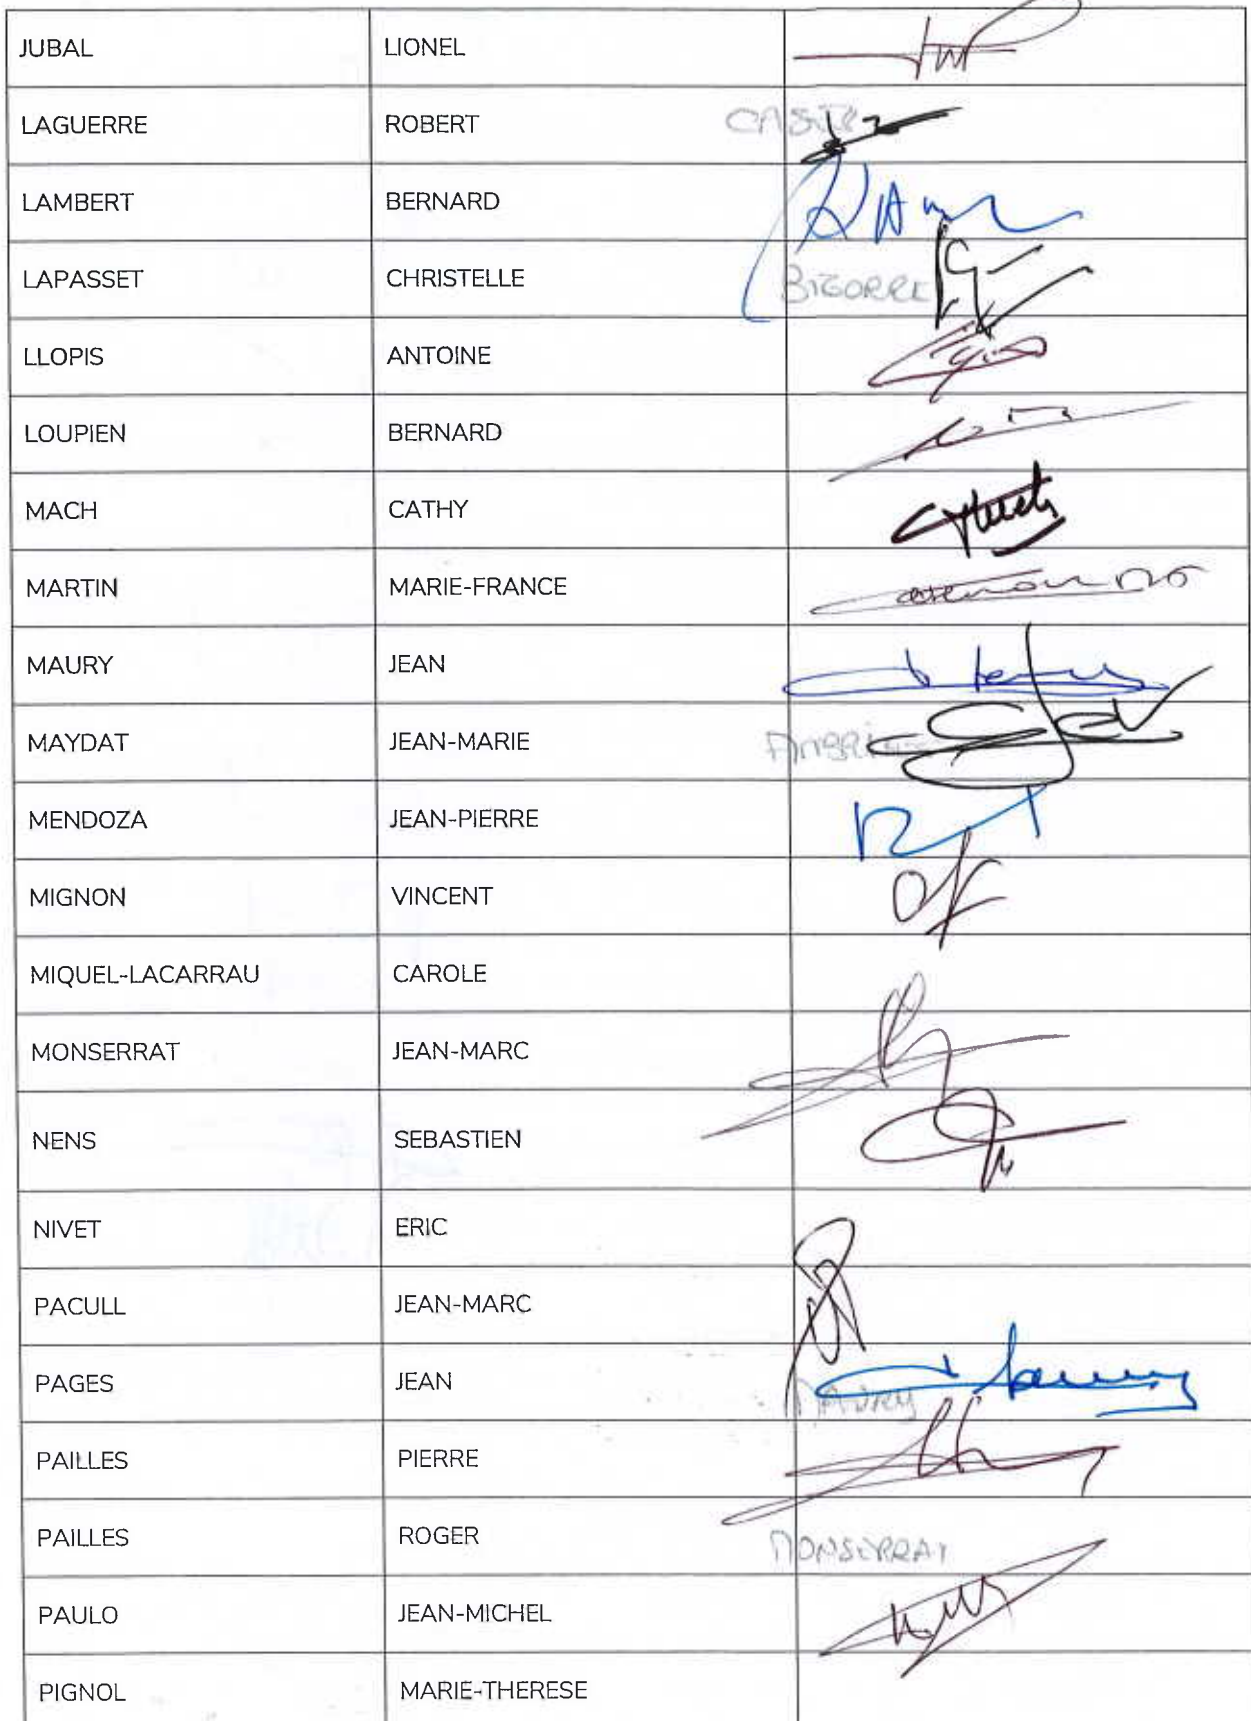 JUBAL LIONEL
LAGUERRE ROBERT
LAMBERT BERNARD
LAPASSET CHRISTELLE BIGORRE
LLOPIS ANTOINE
LOUPIEN BERNARD
MACH CATHY
MARTIN MARIE-FRANCE
MAURY JEAN
MAYDAT JEAN-MARIE
MENDOZA JEAN-PIERRE
MIGNON VINCENT
MIQUEL-LACARRAU CAROLE
MONSERRAT JEAN-MARC
NENS SEBASTIEN
NIVET ERIC
PACULL JEAN-MARC
PAGES JEAN MAURY
PAILLES PIERRE
PAILLES ROGER MONSERRAT
PAULO JEAN-MICHEL
PIGNOL MARIE-THERESE